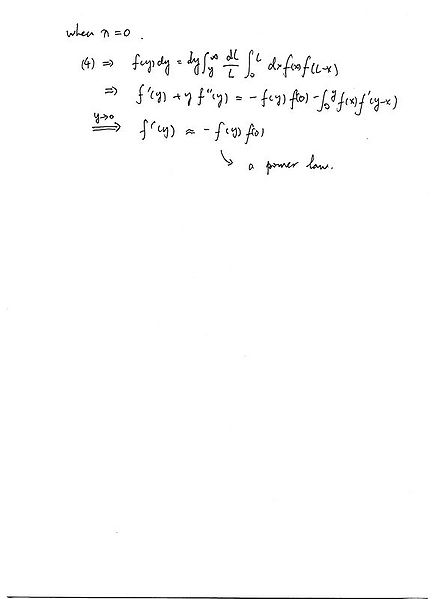 when n = 0 .
(4) ⇒ f(y) dy = dy ∫_y^∞ dL/L ∫_0^L dx f(x) f(L-x)
⇒ f'(y) + y f''(y) = - f(y) f(0) - ∫_0^y f(x) f'(y-x)
y→0 ⇒ f'(y) ≈ - f(y) f(0)
↘ a power law.